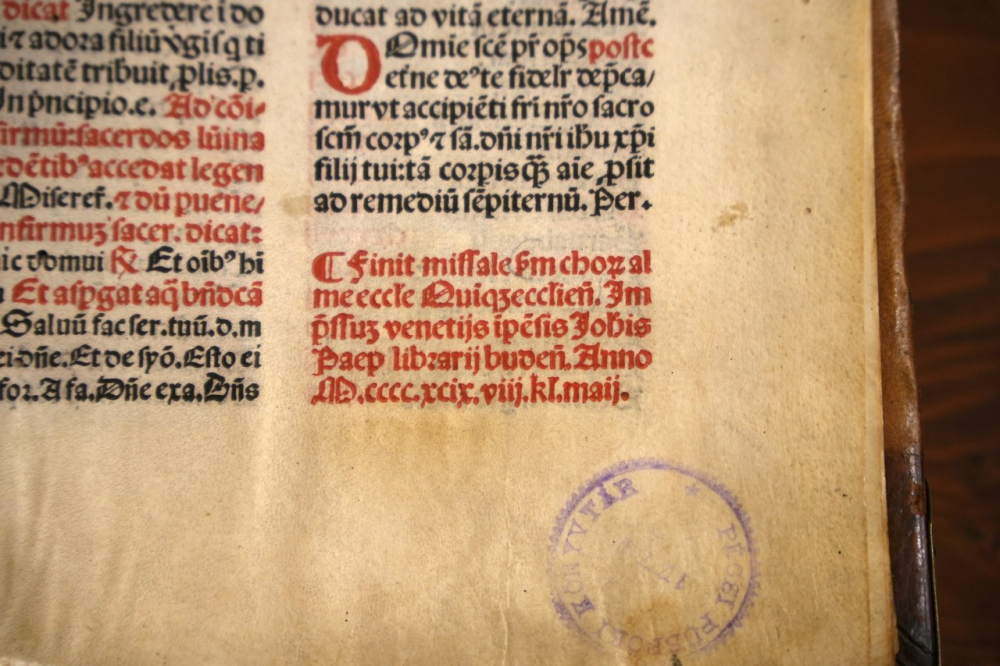 dicat Ingrederē i do
⁊ adora filiū v̄gis q̄ ti
ditatē tribuit. ꝓlis. p.
In p̄ncipio. e. Ad cōi⸗
firmū: sacerdos lūina
edētibꝰ accedat legen
Miseref. ⁊ dū puene/
nfirmuꝫ sacer. dicat:
ic domui ℟ Et oībꝰ hi
Et aspgat aq̄ bn̄dcā
Saluū fac ser. tuū. d. m
ei. dn̄e. Et de syō. Esto ei
for. A fa. Dn̄e exa. Dn̄s
ducat ad vitā eternā. Amē.
DOmie scē pr̄ op̄s postc
et̄ne deꝰ te fidelr̄ dep̄ca/
mur vt accipiēti fr̄i nr̄o sacro
scm̄ corpꝰ ⁊ sā. dn̄i nr̄i ihu xp̄i
filij tui: tā corpis qȝ̄ aīe ꝓsit
ad remediū sēpiternū. Per.
¶ Finit missale ẜm choꝝ al
me eccl̄e Quiqȝecclien̄. Im
p̄ssuȝ venetijs īpēsis Joh̄is
Paep librarij buden̄. Anno
M. cccc. xcix. viij. kl. maij.
PÉCSI PÜSPÖKI KÖNYVTÁR